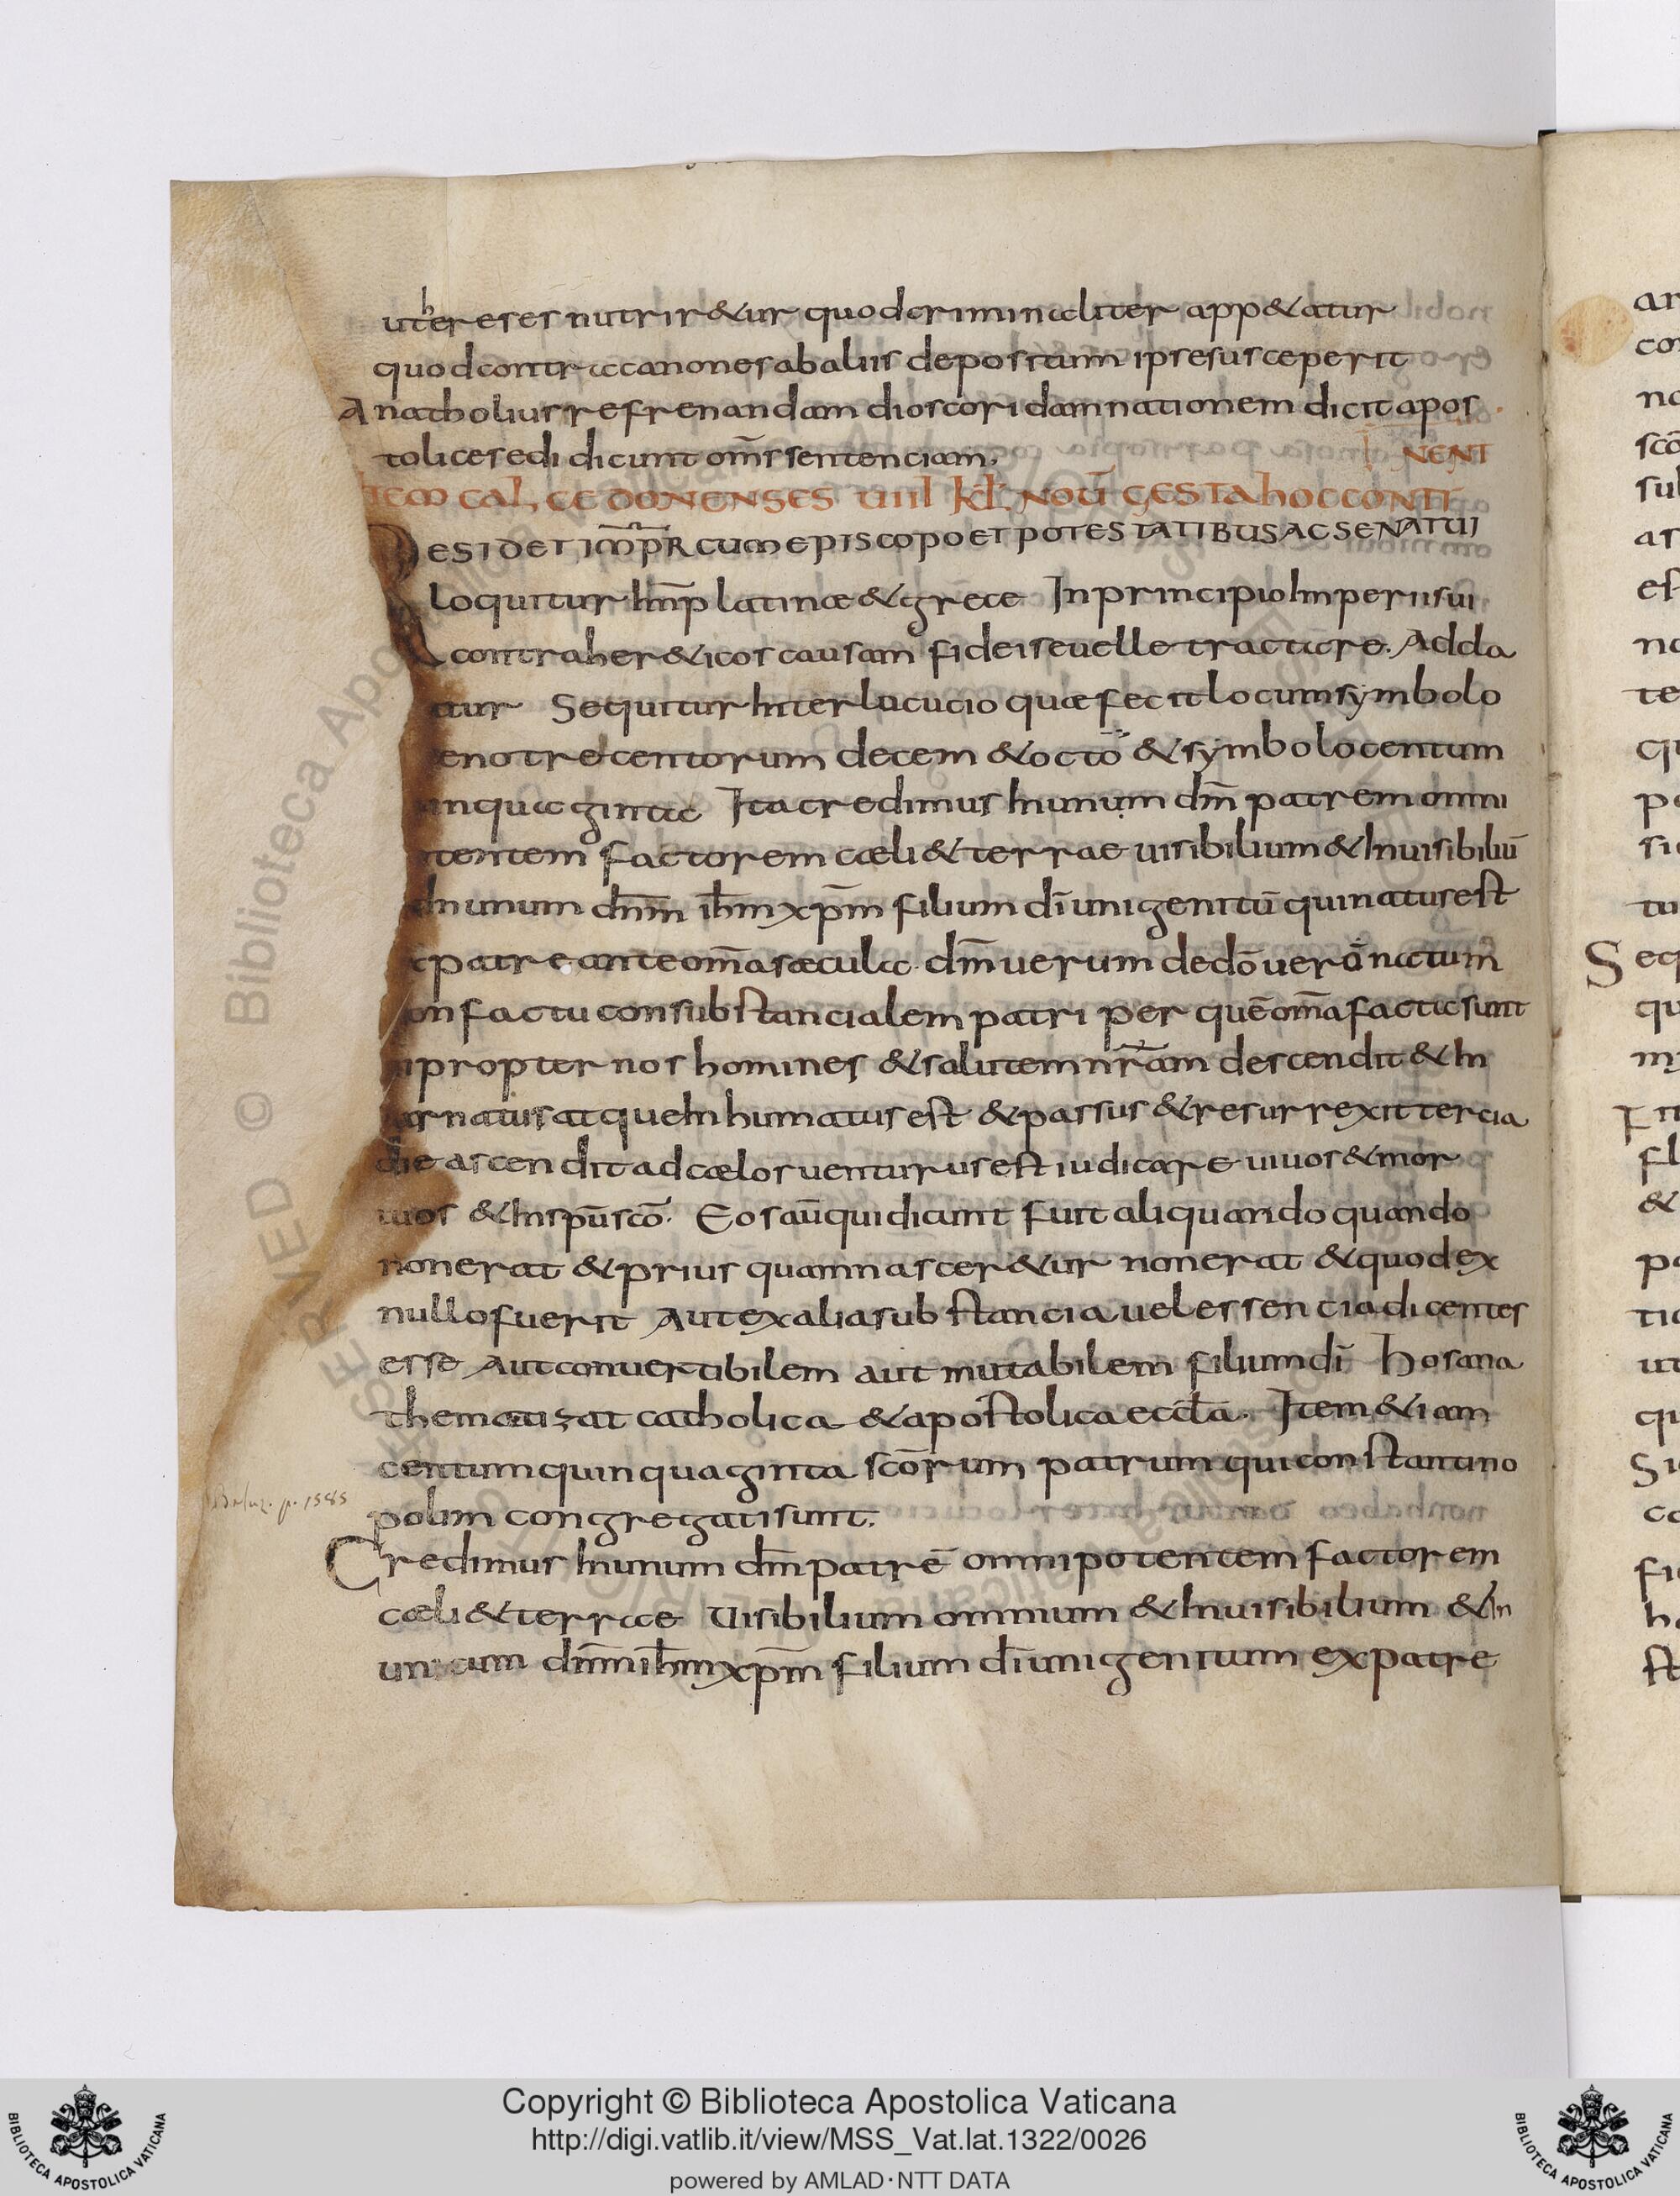 ut hereses nutriretur quod criminaliter appetatur
quod contra canones ab aliis depositum ipse susceperit
Anatholius refrenandam dioscori damnationem dicit apos
tolice sedi dicunt om̄s sentenciam.
NENT
ITEM CALCEDONENSES VIIII KL̄ NOV̄ GESTA hOC CONTI
RESIDET IM̄PR̄ CUM EPISCOPO ET POTESTATIBUS AC SENATUI
loquitur Im̄p latinæ & grece In principio Imperii sui
contra her&icos causam fidei se uelle tractare. Adda
atur Sequitur Interlucucio quæ fecit locum symbolo
eno trecentorum decem & octo & symbolo centum
inquaginta Ita credimus In unum dm̄ patrem omni
tentem factorem cæli & terrae uisibilium & Inuisibiliū
In unum dn̄m ih̄m xp̄m filium dī unigenitū qui natus est
patre ante om̄a sæcula dm̄ uerum de dō uero natum
on factu consubstancialem patri per quē om̄a facta sunt
propter nos homines & salutem nr̄am descendit & In
arnatus atque Inhumatus est & passus & resurrexit tercia
die ascendit ad cælos uenturus est iudicare uiuos & mor
tuos & In sp̄u sc̄o. Eos aū qui dicunt fuit aliquando quando
non erat & prius quam nascer&ur non erat & quod ex
nullo fuerit Aut ex alia substancia uel essencia dicentes
esse Aut conuertibilem aut mutabilem filium dī hos ana
thematizat catholica & apostolica eccl̄a. Item & iam
centum quinquaginta sc̄orum patrum qui constantino
Baluz. p. 1585
polim congregati sunt.
Credimus In unum dm̄ patrē omnipotentem factorem
cæli & terrae Uisibilium omnium & Inuisibilium & In
un um dn̄m ih̄m xp̄m filium dī unigenitum ex patre
Copyright © Biblioteca Apostolica Vaticana
http://digi.vatlib.it/view/MSS_Vat.lat.1322/0026
powered by AMLAD·NTT DATA
BIBLIOTECA APOSTOLICA VATICANA
BIBLIOTECA APOSTOLICA VATICANA